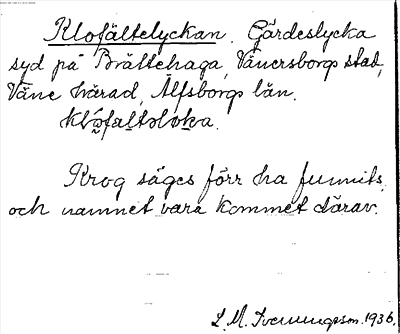 Klofältelyckan. Gärdeslycka
syd på Brättehaga, Vänersborgs stad,
Väne härad, Älfsborgs län.
Krog säges förr ha funnits
och namnet vara kommet därav.
L. M. Svenungsson. 1936.